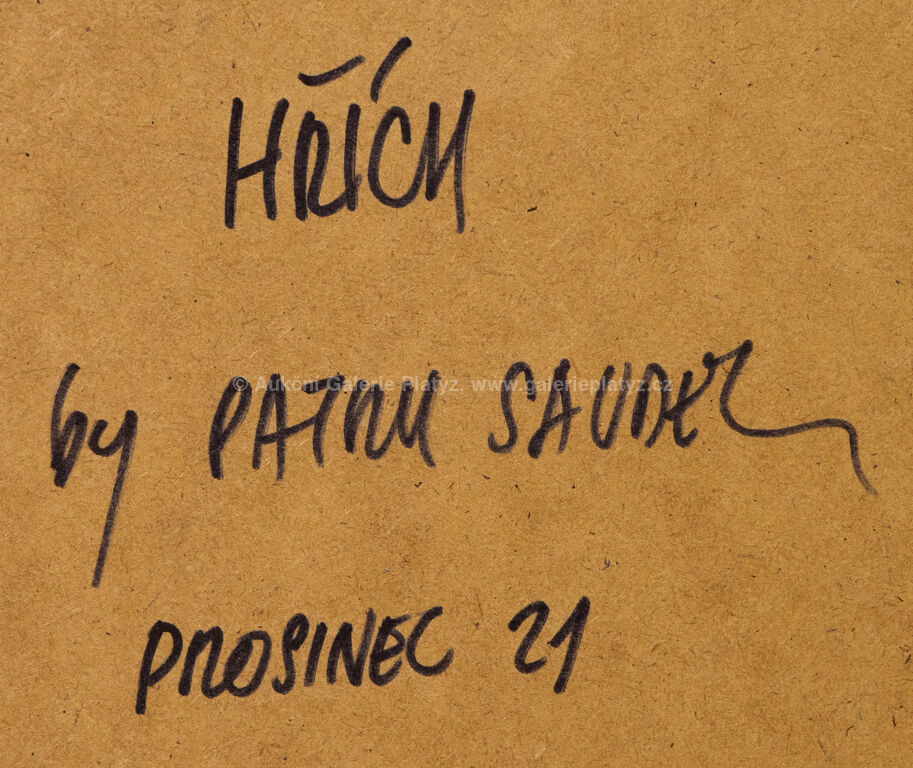 HŘÍCH
© Aukční Galerie Platýz, www.galerieplatyz.cz
by PATRIK SAUDEK
PROSINEC 21